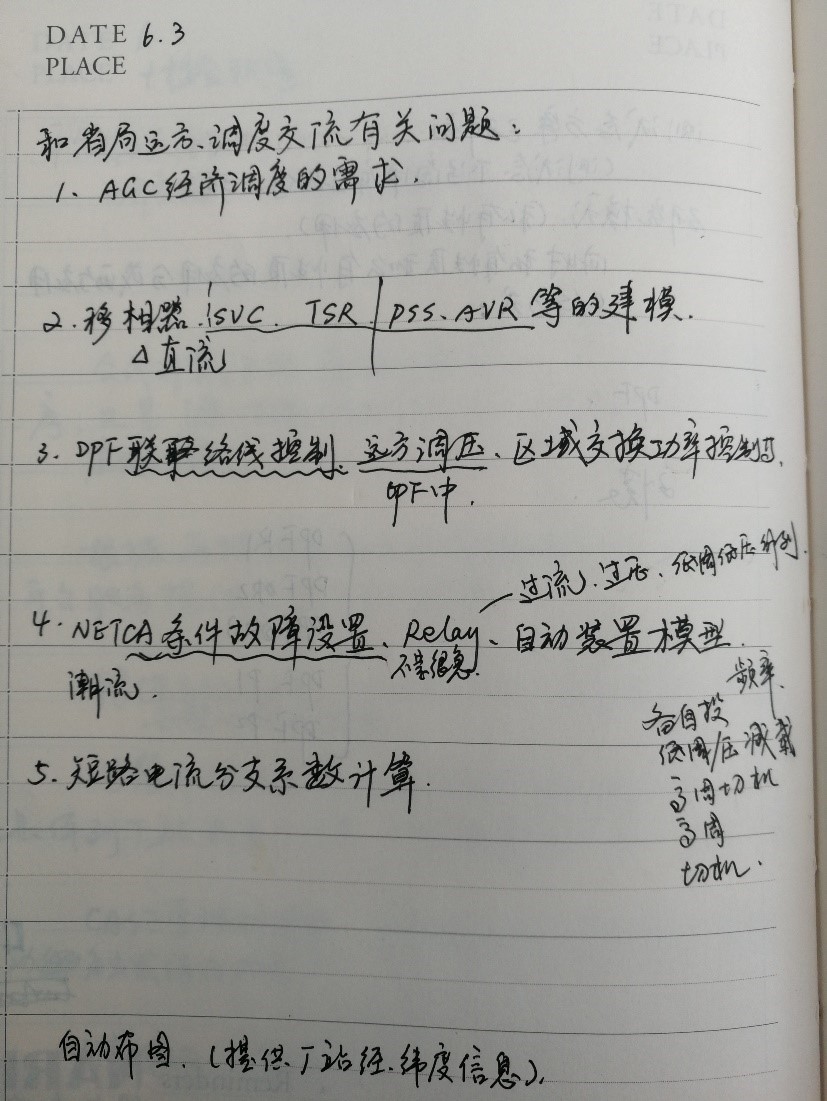 DATE 6.3
PLACE
和省局远方、调度交流有关问题：
1、AGC经济调度的需求.
2.移相器.SVC.TSR PSS、AVR等的建模.
△直流
3、DPF联络线控制、远方调压、区域交换功率控制等.
OPF中.
过流、过压、低周低压解列.
4、NETCA条件故障设置、Relay、自动装置模型.
不亲很急.
潮流.
频率.
备自投
低周/压减载
高周切机
高周
切机.
5、短路电流分支系数计算.
自动布图.(提供厂站经、纬度信息).